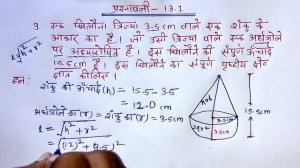 प्रश्नावली - 13.1
3. एक खिलौना त्रिज्या 3.5cm वाले एक शंकु के
आकार का है। जो उसी त्रिज्या वाले एक अर्द्धगोले
पर अध्यारोपित है। इस खिलौने की संपूर्ण ऊँचाई
15.5cm है। इस खिलौने का संपूर्ण पृष्ठीय क्षेत्र
ज्ञात कीजिए।
हल:
शंकु की ऊँचाई (h) = 15.5 - 3.5
= 12.0 cm
अर्धगोले का (r) = शंकु का (r) = 3.5cm
l = √h²+r²
= √(12)² + (3.5)²
πrl
2πr²
3.5cm
15.5cm